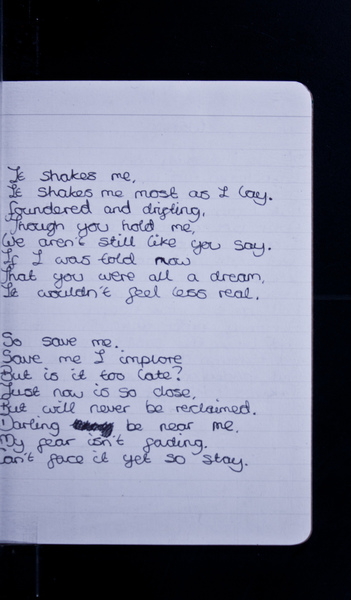 It shakes me,
It shakes me most as I lay.
Foundered and drifting,
Though you hold me,
We aren't still like you say.
If I was told now
That you were all a dream,
It wouldn't feel less real.
So save me.
Save me I implore
But is it too late?
Just now is so close,
But will never be reclaimed.
Darling be near me.
My fear isn't fading.
Can't face it yet so stay.